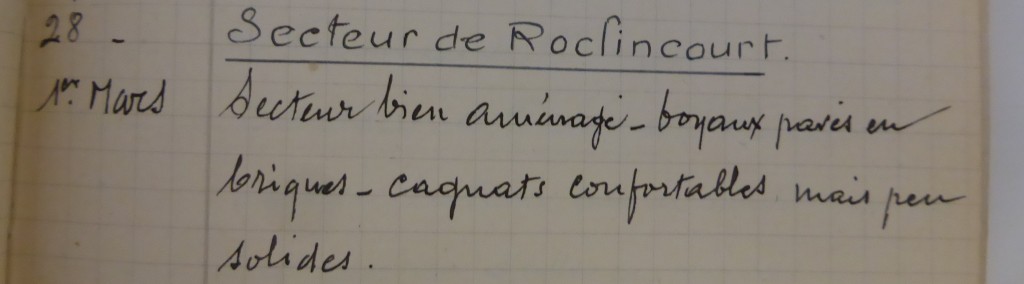 28 - Secteur de Roclincourt.
1er Mars Secteur bien aménagé - boyaux pavés en
briques - cagnats confortables mais peu
solides.